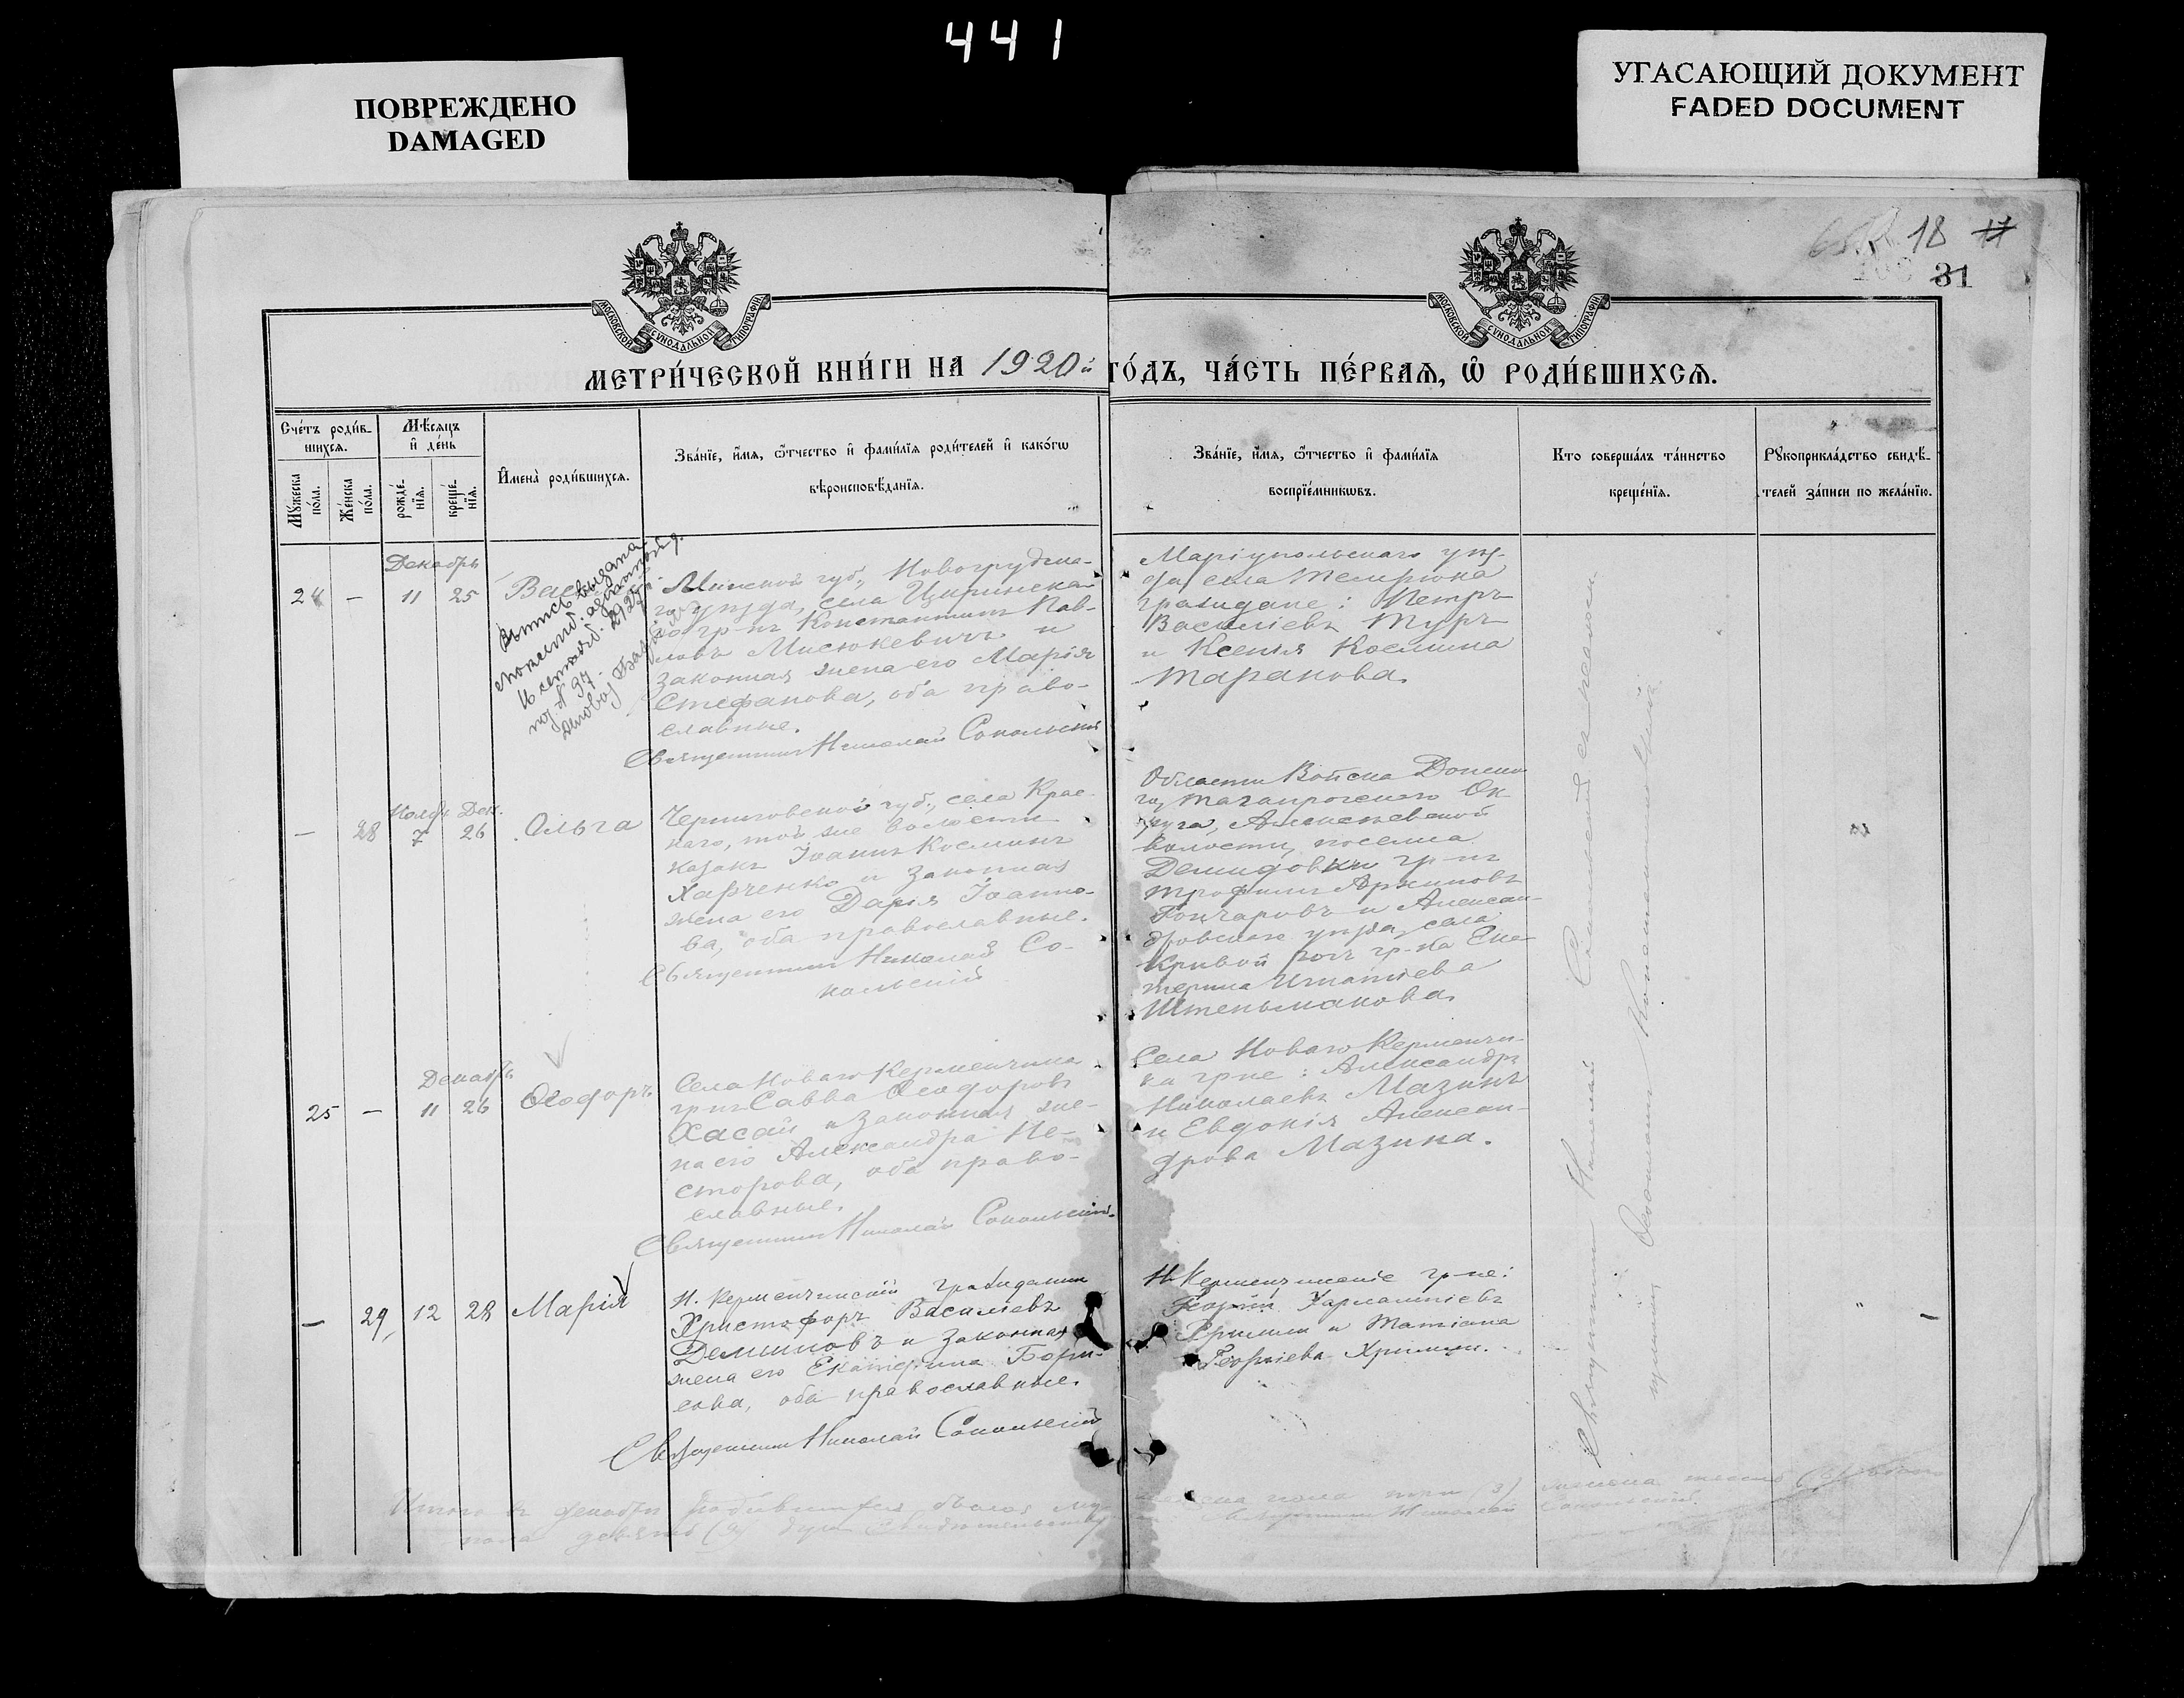 441
ПОВРЕЖДЕНО
DAMAGED
УГАСАЮЩИЙ ДОКУМЕНТ
FADED DOCUMENT
18 17
31
МОСКОВСКОЙ СѴНОДАЛЬНОЙ ТИПОГРАФІИ
МОСКОВСКОЙ СѴНОДАЛЬНОЙ ТИПОГРАФІИ
МЕТРИ́ЧЕСКОЙ КНИ́ГИ НА 1920й ГО́ДЪ, ЧА́СТЬ ПЕ́РВАѦ, Ѡ҆ РОДИ́ВШИХСѦ.
Сче́тъ роди́в-
шихсѧ.
Мꙋжеска по́ла.
Же́нска по́ла.
Мѣ́сѧцъ
и҆ де́нь
рожде́-
нїѧ.
креще́-
нїѧ.
И҆мена̀ роди́вшихсѧ.
Зва́нїе, и҆́мѧ, ѻ҆́тчество и҆ фами́лїѧ роди́телей и҆ како́гѡ
вѣроисповѣ́данїѧ.
Зва́нїе, и҆́мѧ, ѻ҆́тчество и҆ фами́лїѧ
воспрїе́мникѡвъ.
Кто соверша́лъ та́инство
креще́нїѧ.
Рꙋкоприкла́дство свидѣ́-
телей за́писи по жела́нїю.
Декабрь
24 – 11 25
Минской губ., Новогрудска-
го уѣзда, села Циринска-
го гр-нъ Константинъ Пав-
ловъ Мисюкевичъ и
законная жена его Марія
Стефанова, оба право-
славные.
Священникъ Николай Сокольскій
Маріупольскаго уѣз-
да села Темрюка
граждане: Петръ
Василіевъ Туръ
и Ксенія Космина
Таранова.
Выпись выдана
16 сентяб. 1927
№ 97.
Ноябр. Дек.
– 28 7 26 Ольга
Черниговской губ., села Крас-
наго, той же волости
казакъ Іоаннъ Косминъ
Харченко и законная
жена его Дарія Іоанно-
ва, оба православные.
Священникъ Николай Со-
кольскій
Области Войска Донска-
го, Таганрогскаго Ок-
руга, Алексѣевской
волости, поселка
Демидовки гр-нъ
Трофимъ Архиповъ
Гончаровъ и Алексан-
дровскаго уѣзда, села
Кривой рогъ гр-ка Ека-
терина Игнатіева
Штеньманова.
Декабрь
25 – 11 26 Ѳеодоръ
Села Новаго Керменчика
гр-нъ Савва Ѳеодоровъ
Хасай и законная же-
на его Александра Не-
сторова, оба право-
славные.
Священникъ Николай Сокольскій.
Села Новаго Керменчи-
ка гр-не: Александръ
Николаевъ Мазинъ
и Евдокія Алексан-
дрова Мазина.
– 29 12 28 Марія
Н. Керменчикскій гражданинъ
Христофоръ Василіевъ
Демьиновъ и законная
жена его Екатерина Бори-
сова, оба православные.
Священникъ Николай Сокольскій
Н-Керменчикскіе гр-не:
Георгій Харлампіевъ
и Татіана
Георгіева
Священникъ Николай Сокольскій съ псаломщ.
Константино
Итого въ декабрѣ родившихся было: му-жеска пола три (3) женска шесть (6) обоего
пола девять (9) душъ Священникъ Николай Сокольскій.